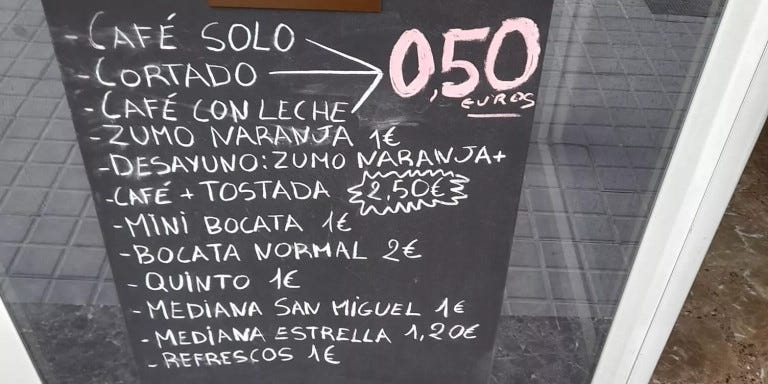 - CAFÉ SOLO
- CORTADO
0,50
EUROS
- CAFÉ CON LECHE
- ZUMO NARANJA 1€
- DESAYUNO: ZUMO NARANJA +
- CAFÉ + TOSTADA 2,50€
- MINI BOCATA 1€
- BOCATA NORMAL 2€
- QUINTO 1€
- MEDIANA SAN MIGUEL 1€
- MEDIANA ESTRELLA 1,20€
- REFRESCOS 1€